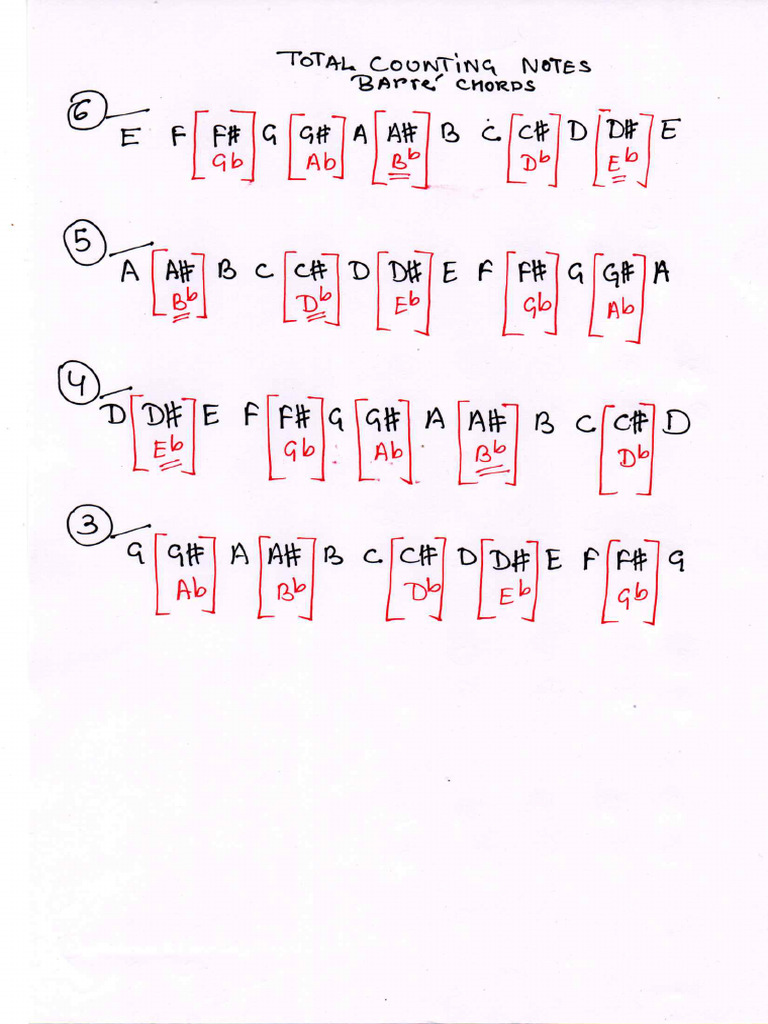 TOTAL COUNTING NOTES
BARRÉ CHORDS
6
E F [F#] G [G#] A [A#] B C [C#] D [D#] E
Gb Ab Bb Db Eb
5
A [A#] B C [C#] D [D#] E F [F#] G [G#] A
Bb Db Eb Gb Ab
4
D [D#] E F [F#] G [G#] A [A#] B C [C#] D
Eb Gb Ab Bb Db
3
G [G#] A [A#] B C [C#] D [D#] E F [F#] G
Ab Bb Db Eb Gb